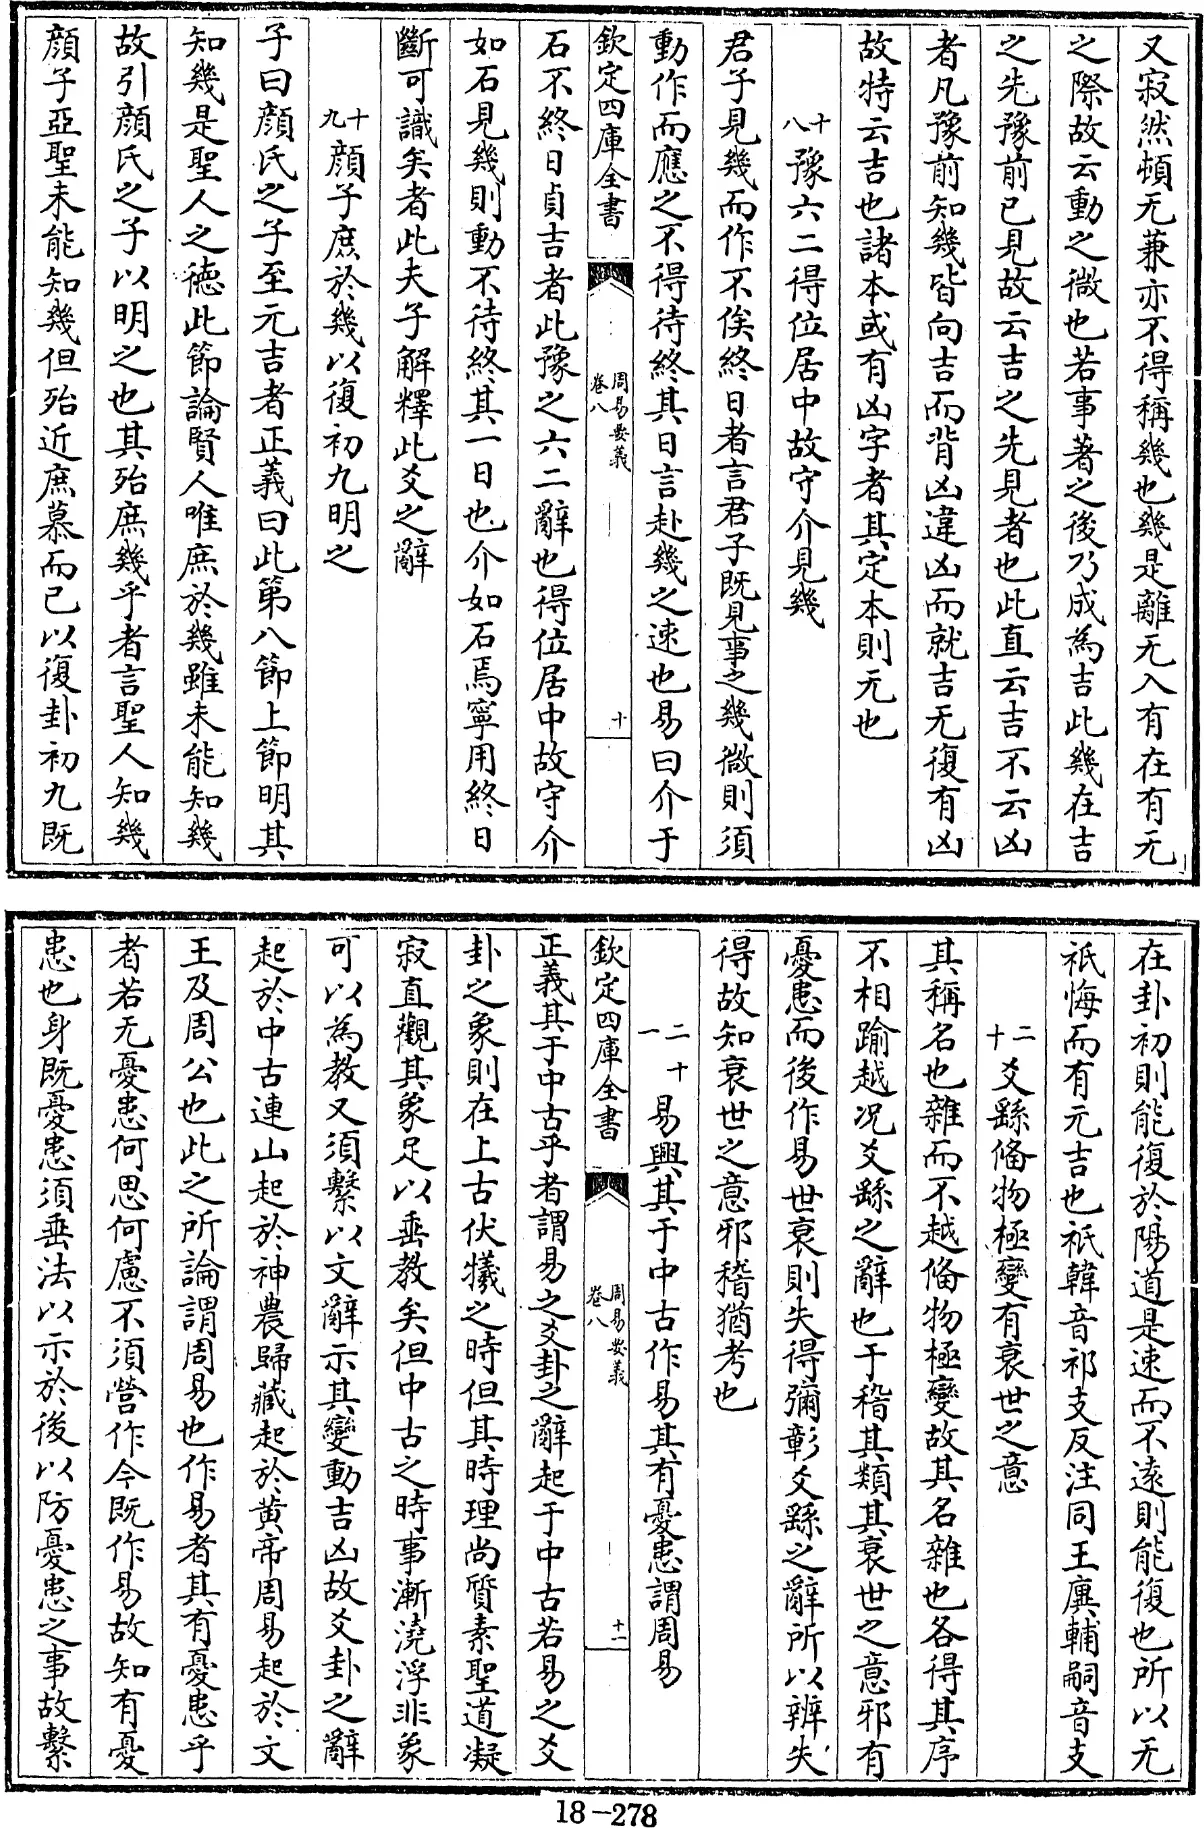 又寂然頓无兼亦不得稱幾也幾是離无入有在有无
之際故云動之微也若事著之後乃成為吉此幾在吉
之先豫前已見故云吉之先見者也此直云吉不云凶
者凡豫前知幾皆向吉而背凶違凶而就吉无復有凶
故特云吉也諸本或有凶字者其定本則无也
十八豫六二得位居中故守介見幾
君子見幾而作不俟終日者言君子既見事之幾微則須
動作而應之不得待終其日言赴幾之速也易曰介于
欽定四庫全書 周易要義 卷八 十
石不終日貞吉者此豫之六二辭也得位居中故守介
如石見幾則動不待終其一日也介如石焉寧用終日
斷可識矣者此夫子解釋此爻之辭
十九顔子庶於幾以復初九明之
子曰顔氏之子至元吉者正義曰此第八節上節明其
知幾是聖人之德此節論賢人唯庶於幾雖未能知幾
故引顔氏之子以明之也其殆庶幾乎者言聖人知幾
顔子亞聖未能知幾但殆近庶慕而已以復卦初九既
在卦初則能復於陽道是速而不遠則能復也所以无
祇悔而有元吉也祇韓音祁支反注同王廙輔嗣音支
二十爻繇俻物極變有衰世之意
其稱名也雜而不越俻物極變故其名雜也各得其序
不相踰越况爻繇之辭也于稽其類其衰世之意邪有
憂患而後作易世衰則失得彌彰爻繇之辭所以辨失
得故知衰世之意邪稽猶考也
二十一易興其于中古作易其有憂患謂周易
欽定四庫全書 周易要義 卷八 十一
正義其于中古乎者謂易之爻卦之辭起于中古若易之爻
卦之象則在上古伏犧之時但其時理尚質素聖道凝
寂直觀其象足以垂教矣但中古之時事漸澆浮非象
可以為教又須繫以文辭示其變動吉凶故爻卦之辭
起於中古連山起於神農歸藏起於黄帝周易起於文
王及周公也此之所論謂周易也作易者其有憂患乎
者若无憂患何思何慮不須營作今既作易故知有憂
患也身既憂患須垂法以示於後以防憂患之事故繫
18-278